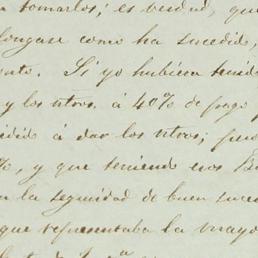 tomarlos; es verdad, que
longase como ha sucedido,
ento. Si yo hubiera tenido
y los otros. á 40% de pago
edido á dar los otros; pero
%, y que teniendo esos B
la seguridad de buen suce
que representaba la mayo